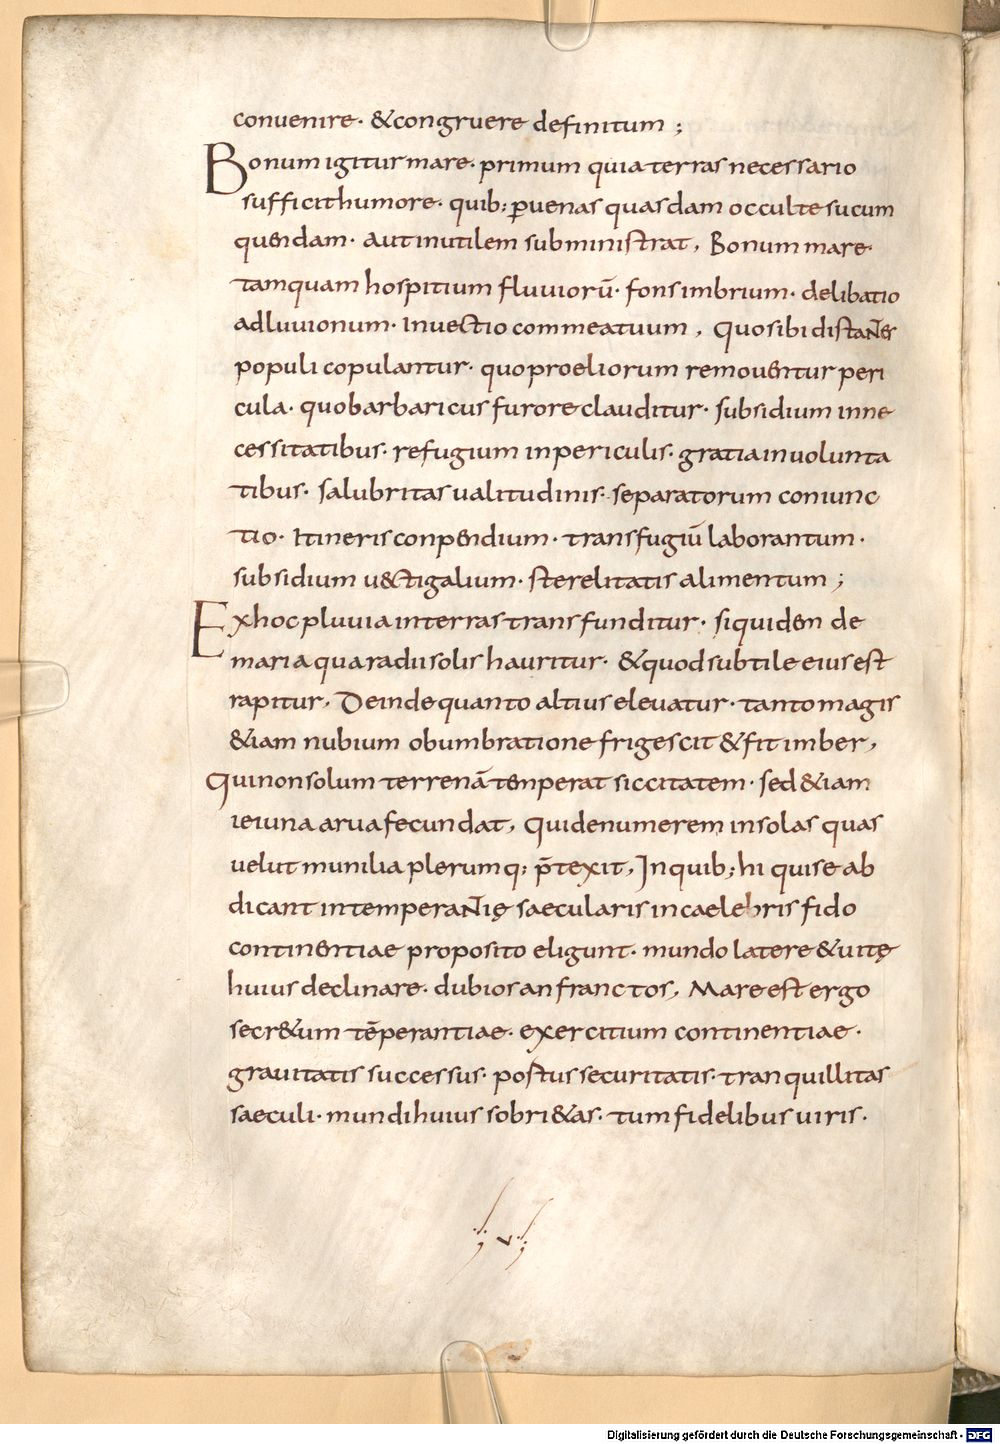 conuenire · &congruere definitum ;
Bonum igitur mare · primum quia terras necessario
sufficit humore · quib; ꝑuenas quasdam occulte sucum
quendam · aut inutilem subministrat, Bonum mare ·
tamquam hospitium fluuiorū · fons imbrium · delibatio
adluuionum · Inuectio commeatuum, quo sibi distantes
populi copulantur · quo proeliorum remouentur peri
cula · quo barbaricus furore clauditur · subsidium inne
cessitatibus · refugium in periculis · gratia in uolunta
tibus · salubritas ualitudinis · separatorum coniunc
tio · Itineris conpendium · transfugiū laborantum ·
subsidium uectigalium · sterelitatis alimentum ;
Ex hoc pluuia interras transfunditur · siquiden de
maria qua radii solis hauritur · &quod subtile eius est
rapitur, Deinde quanto altius eleuatur · tanto magis
&iam nubium obumbratione frigescit & fit imber,
Qui non solum terrenā tenperat siccitatem · sed &iam
ieiuna arua fecundat, Quid enumerem insolas quas
uelut munilia plerumq; p̄texit, In quib; hi qui se ab
dicant intemperantię saecularis incaelebris fido
continentiae proposito eligunt · mundo latere & uitę
huius declinare · dubios anfranctos, Mare est ergo
secr&um tēperantiae · exercitium continentiae ·
grauitatis successus · postus securitatis · tranquillitas
saeculi · mundi huius sobri&as · tum fidelibus uiris ·
v
Digitalisierung gefördert durch die Deutsche Forschungsgemeinschaft - DFG